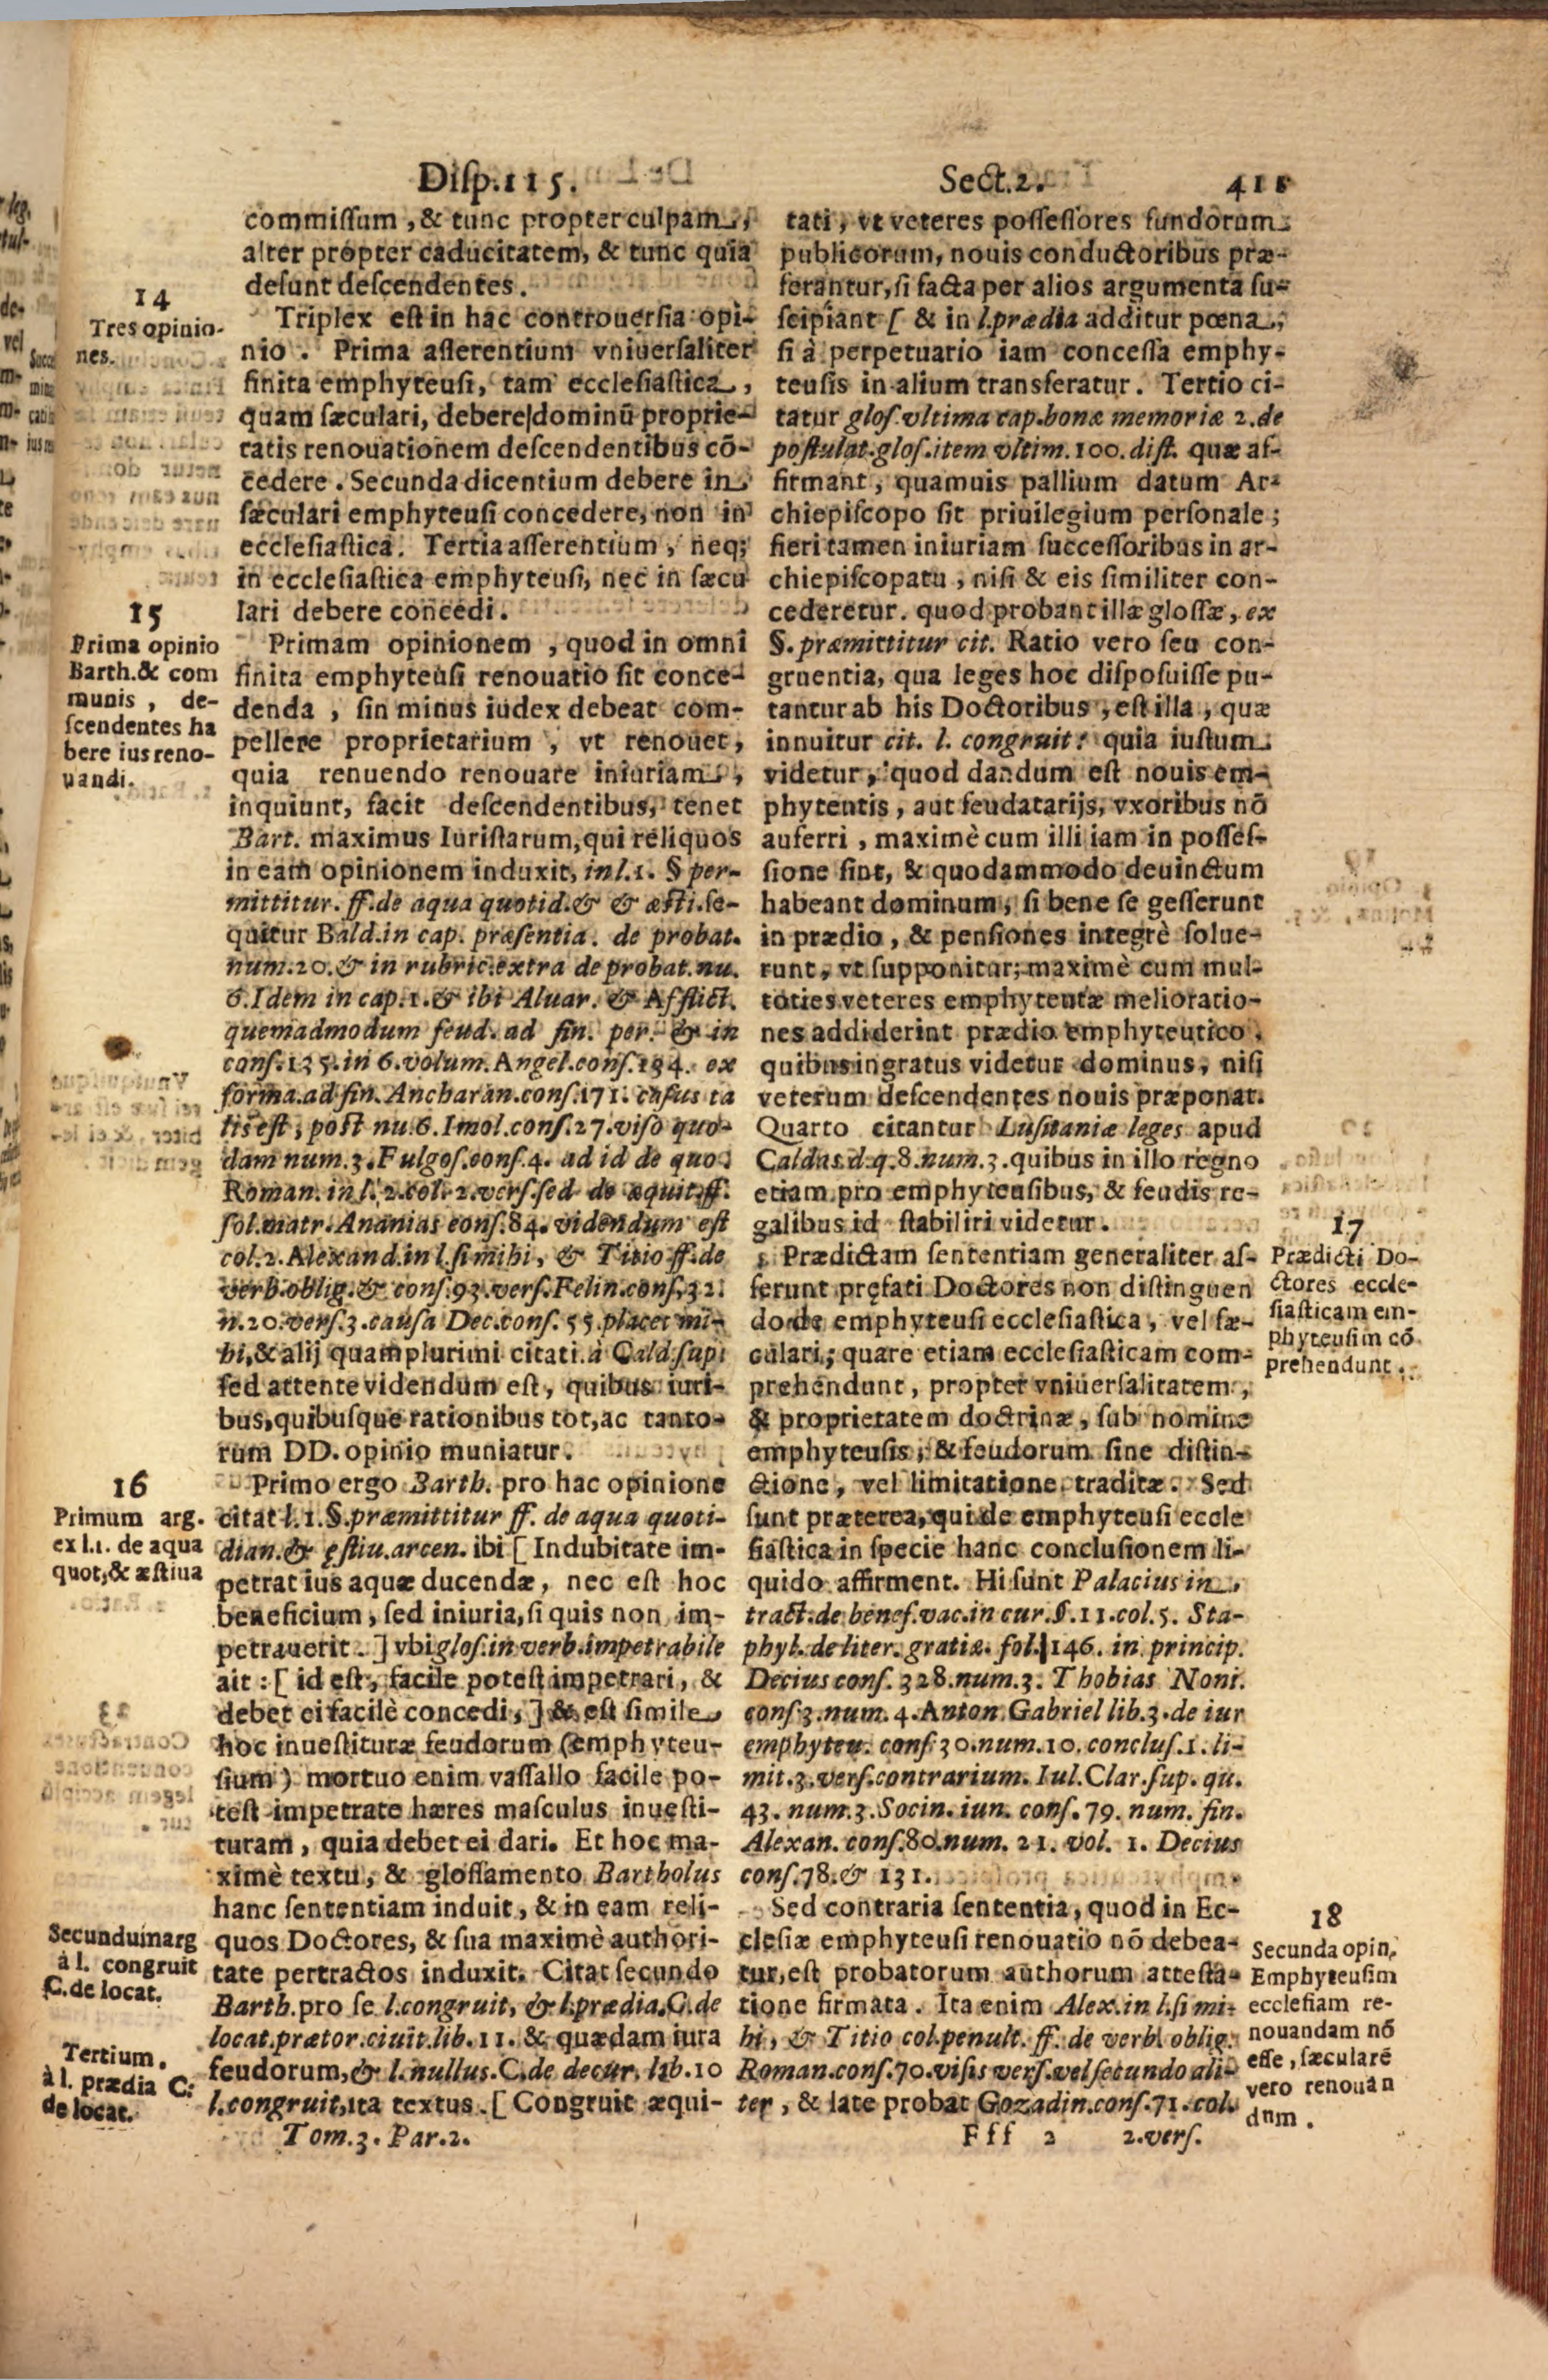 Disp.115.
Sect.2.
411
commissum, & tunc propter culpam,
alter propter caducitatem, & tunc quia
desunt descendentes.
14
Tres opinio-
nes.
Triplex est in hac controuersia opi-
nio. Prima asserentium vniuersaliter
finita emphyteusi, tam ecclesiastica,
quam sæculari, debere dominū proprie-
tatis renouationem descendentibus cō-
cedere. Secunda dicentium debere in
sæculari emphyteusi concedere, non in
ecclesiastica. Tertia asserentium, neq;
in ecclesiastica emphyteusi, nec in sæcu
lari debere concedi.
15
Prima opinio
Barth. & com
munis, de-
scendentes ha
bere ius reno-
uandi.
Primam opinionem, quod in omni
finita emphyteusi renouatio sit conce-
denda, sin minus iudex debeat com-
pellere proprietarium, vt renouet,
quia renuendo renouare iniuriam,
inquiunt, facit descendentibus, tenet
Bart. maximus Iuristarum, qui reliquos
in eam opinionem induxit, in l.1. § per-
mittitur. ff. de aqua quotid. & & æsti. se-
quitur Bald. in cap. præsentia. de probat.
num.20. & in rubric. extra de probat. nu.
6. Idem in cap.1. & ibi Aluar. & Afflict.
quemadmodum feud. ad fin. per. & in
cons.135. in 6. volum. Angel. cons.194. ex
forma. ad fin. Ancharan. cons.171. casus ta
lis est, post nu.6. Imol. cons.27. viso quo-
dam num.3. Fulgos. cons.4. ad id de quo.
Roman. in l. 2. col. 2. vers. sed de æquit. ff.
sol. matr. Ananias cons.84. videndum est
col.2. Alexand. in l. si mihi, & Titio ff. de
verb. oblig. & cons.93. vers. Felin. cons.32.
n.20. vers.3. causa Dec. cons. 55. placet mi-
hi, & alij quamplurimi citati à Cald. sup.
sed attente videndum est, quibus iuri-
bus, quibusque rationibus tot, ac tanto-
rum DD. opinio muniatur.
16
Primum arg.
ex l.1. de aqua
quot, & æstiua
Primo ergo Barth. pro hac opinione
citat l.1. §. præmittitur ff. de aqua quoti-
dian. & ęstiu. arcen. ibi [ Indubitate im-
petrat ius aquæ ducendæ, nec est hoc
beneficium, sed iniuria, si quis non im-
petrauerit. ] vbi glos. in verb. impetrabile
ait: [ id est, facile potest impetrari, &
debet ei facilè concedi, ] & est simile
hoc inuestituræ feudorum (emphyteu-
sium) mortuo enim vassallo facile po-
test impetrate hæres masculus inuesti-
turam, quia debet ei dari. Et hoc ma-
ximè textu, & glossamento Bartholus
hanc sententiam induit, & in eam reli-
quos Doctores, & sua maximè authori-
tate pertractos induxit. Citat secundo
Barth. pro se l. congruit, & l. prædia. C. de
locat. prætor. ciuit. lib. 11. & quædam iura
feudorum, & l. nullus. C. de decur. lib. 10
l. congruit, ita textus. [ Congruit æqui-
Secundum arg
à l. congruit
C. de locat.
Tertium.
à l. prædia C.
de locat.
Tom.3. Par.2.
tati, vt veteres possessores fundorum
publicorum, nouis conductoribus præ-
ferantur, si facta per alios argumenta su-
scipiant [ & in l. prædia additur pœna,
si à perpetuario iam concessa emphy-
teusis in alium transferatur. Tertio ci-
tatur glos. vltima cap. bonæ memoriæ 2. de
postulat. glos. item vltim. 100. dist. quæ af-
firmant, quamuis pallium datum Ar-
chiepiscopo sit priuilegium personale;
fieri tamen iniuriam successoribus in ar-
chiepiscopatu, nisi & eis similiter con-
cederetur. quod probant illæ glossæ, ex
§. præmittitur cit. Ratio vero seu con-
gruentia, qua leges hoc disposuisse pu-
tantur ab his Doctoribus, est illa, quæ
innuitur cit. l. congruit: quia iustum
videtur, quod dandum est nouis em-
phyteutis, aut feudatarijs, vxoribus nō
auferri, maximè cum illi iam in posses-
sione sint, & quodammodo deuinctum
habeant dominum, si bene se gesserunt
in prædio, & pensiones integrè solue-
runt, vt supponitur; maximè cum mul-
toties veteres emphyteutæ melioratio-
nes addiderint prædio emphyteutico,
quibus ingratus videtur dominus, nisi
veterum descendentes nouis præponat.
Quarto citantur Lusitaniæ leges apud
Caldas d. q. 8. num. 3. quibus in illo regno
etiam pro emphyteusibus, & feudis re-
galibus id stabiliri videtur.
17
Prædicti Do-
ctores eccle-
siasticam em-
phyteusim cō
prehendunt.
Prædictam sententiam generaliter as-
serunt pręfati Doctores non distinguen
do de emphyteusi ecclesiastica, vel sæ-
culari; quare etiam ecclesiasticam com-
prehendunt, propter vniuersalitatem,
& proprietatem doctrinæ, sub nomine
emphyteusis, & feudorum sine distin-
ctione, vel limitatione traditæ. Sed
sunt præterea, qui de emphyteusi eccle
siastica in specie hanc conclusionem li-
quido affirment. Hi sunt Palacius in
tract. de benef. vac. in cur. §. 11. col. 5. Sta-
phyl. de liter. gratiæ. fol. 146. in princip.
Decius cons. 328. num. 3. Thobias Noni.
cons. 3. num. 4. Anton. Gabriel lib. 3. de iur
emphyteu. cons. 30. num. 10. conclus. 1. li-
mit. 3. vers. contrarium. Iul. Clar. sup. qu.
43. num. 3. Socin. iun. cons. 79. num. fin.
Alexan. cons. 80. num. 21. vol. 1. Decius
cons. 78. & 131.
18
Secunda opin.
Emphyteusim
ecclesiam re-
nouandam nō
esse, sæcularē
vero renouan
dum.
Sed contraria sententia, quod in Ec-
clesiæ emphyteusi renouatio nō debea-
tur, est probatorum authorum attesta-
tione firmata. Ita enim Alex. in l. si mi-
hi, & Titio col. penult. ff. de verb. oblig.
Roman. cons. 70. visis vers. vel secundo ali-
ter, & late probat Gozadin. cons. 71. col.
Fff 2
2. vers.